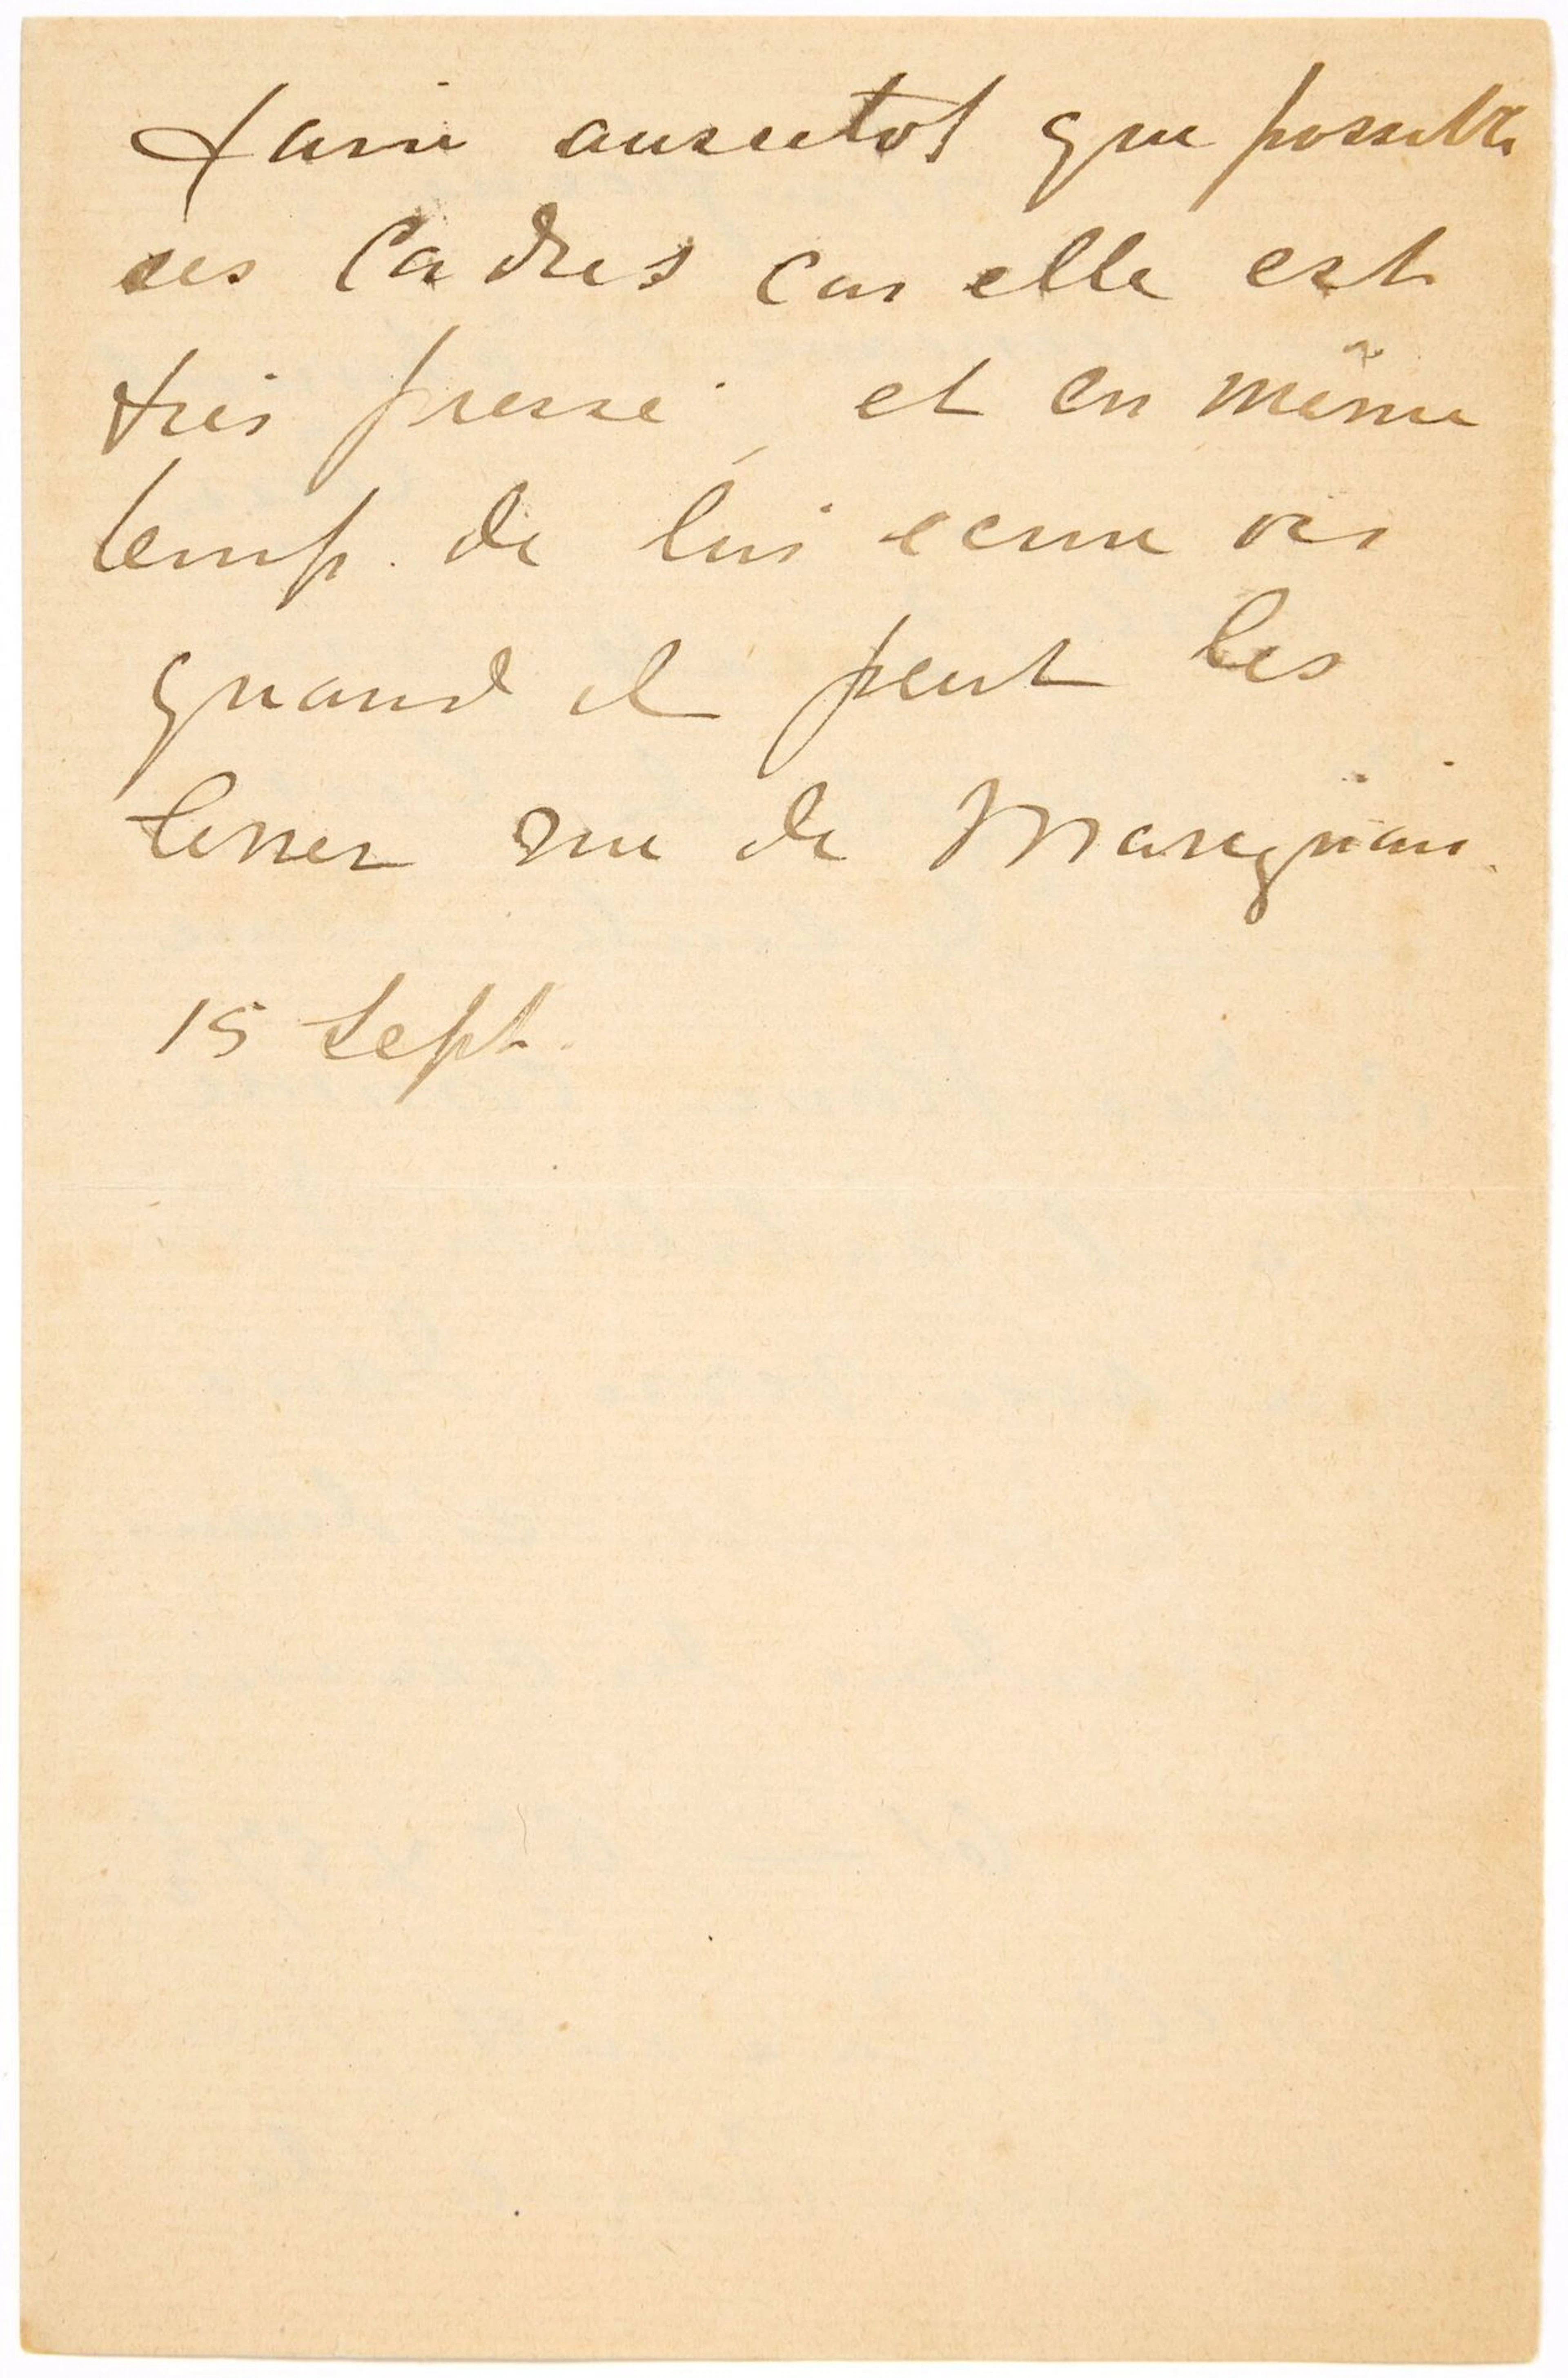 faire aussitot que possible
ses Cadres car elle est
très pressé et en même
temp. de lui ecrire
quand il peut les
livrer rue de Marignan.
15 Sept.